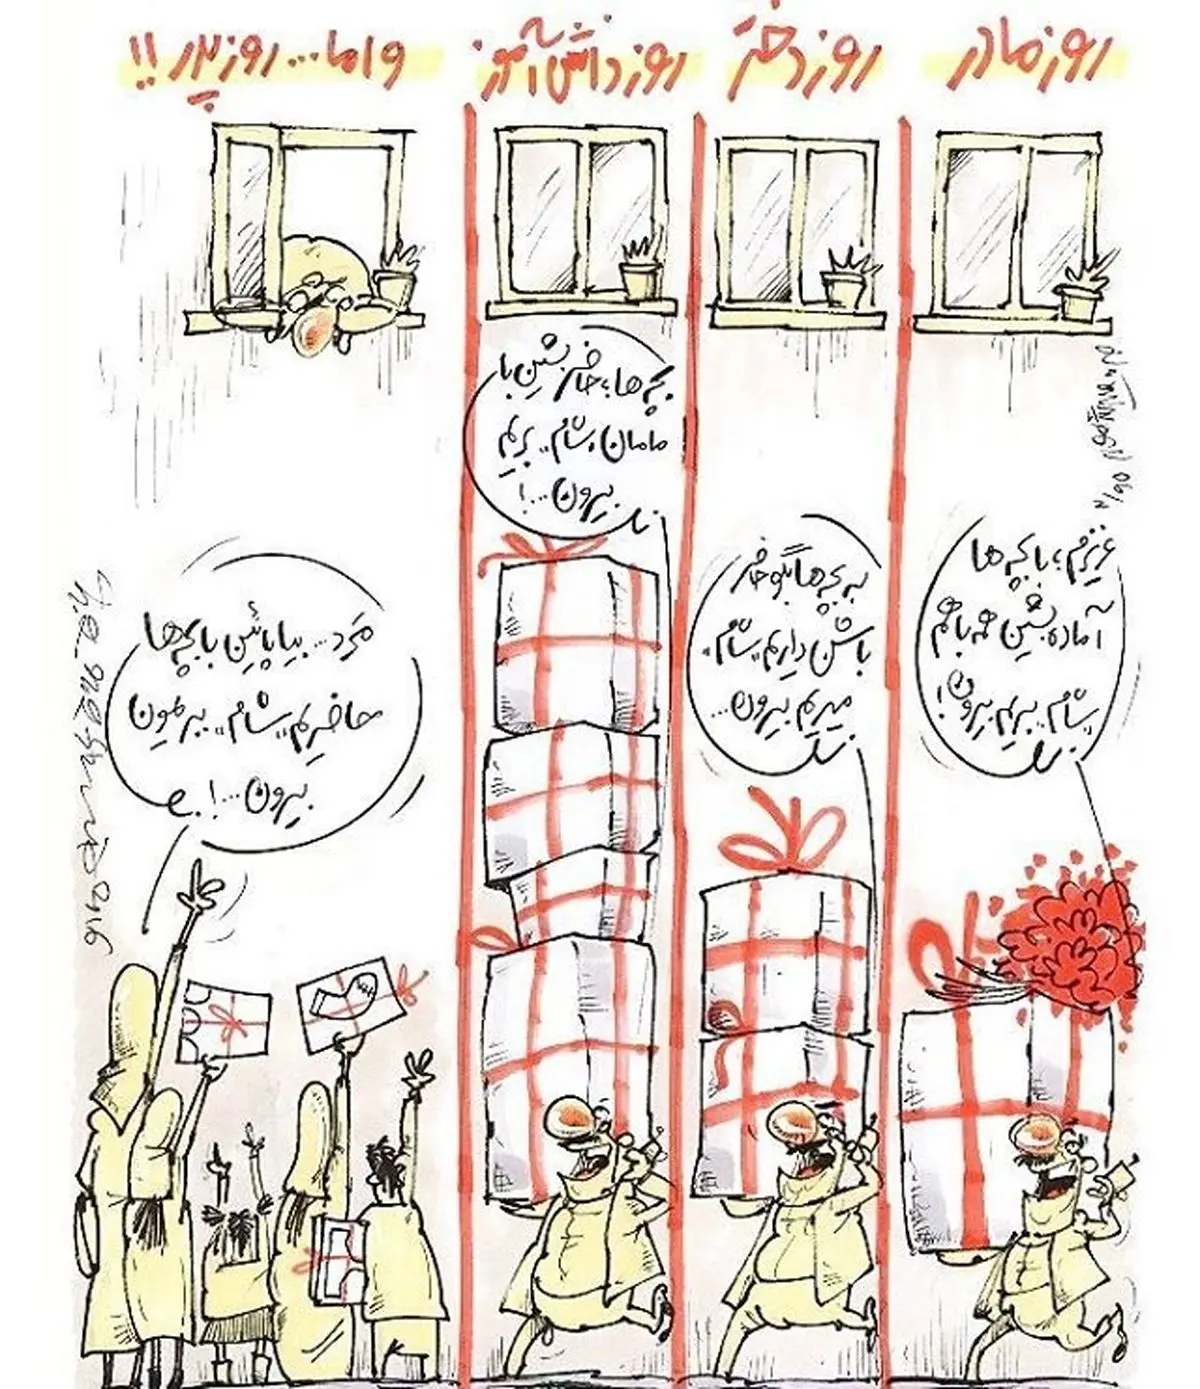 روز مادر
عزیزم؛ با بچه ها
آماده بشین همه باهم
"شام" بریم بیرون!
روز دختر
به بچه ها بگو حاضر
باشن داریم "شام"
میریم بیرون...
روز دانش آموز
بچه ها؛ حاضر بشین با
مامان "شام" بریم
بیرون...!
و اما... روز پدر!!
مَرد... بیا پائین با بچه ها
حاضریم "شام" ببریمون
بیرون...!
2016